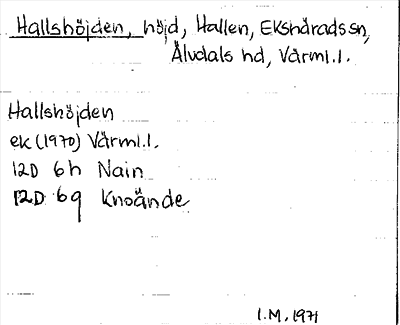 Hallshöjden, höjd, Hallen, Ekshäradssn,
Älvdals hd, Värml.l.
Hallshöjden
ek (1970) Värml.l.
12D 6h Nain
12D 6g Knoände
I.M. 1971